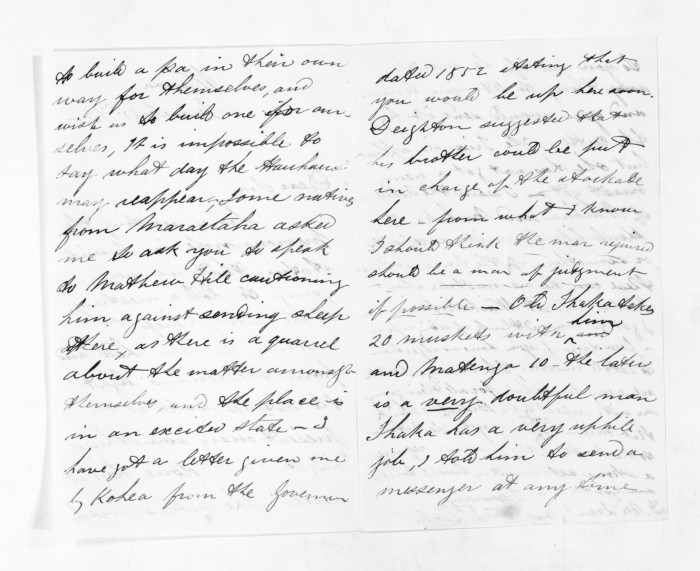 to build a pa in their own
way for themselves, and
wish us to build one for our-
selves, It is impossible to
say what day the Hauhaus
may reappear, Some natives
from Maraetaha asked
me to ask you to speak
to Mathew Hile cautioning
him against sending sheep
there, as there is a quarrel
about the matter amongst
themselves, and the place is
in an excited state - I
have got a letter given me
by Kohea from the Governor
dated 1852 stating that
you would be up here soon.
Deighton suggested that
his brother could be put
in charge of the stockade
here - from what I know
I should think the man required
should be a man of judgment
if possible - Old Ihaka takes
20 muskets with him
and Matenga 10 - the later
is a very doubtful man
Ihaka has a very uphile
job, I told him to send a
messenger at any time